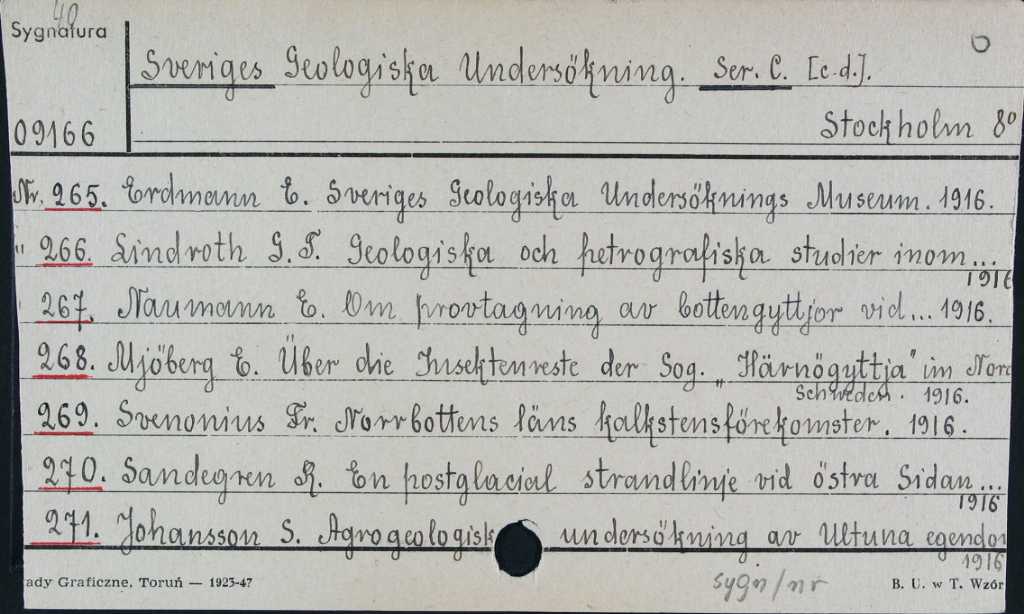 40
Sygnatura
Sveriges Geologiska Undersökning. Ser. C. [c.d.].
09166
Stockholm 8º
Nr. 265. Erdmann E. Sveriges Geologiska Undersöknings Museum. 1916.
" 266. Lindroth G. T. Geologiska och petrografiska studier inom...
1916
267. Naumann E. Om provtagning av bottengyttjor vid... 1916.
268. Mjöberg E. Über die Insektenreste der Sog. „Härnögyttja" im Nord
Schweden. 1916.
269. Svenonius Fr. Norrbottens läns kalkstensförekomster. 1916.
270. Sandegren R. En postglacial strandlinje vid östra Sidan...
1916
271. Johansson S. Agrogeologisk undersökning av Ultuna egendom
1916
ady Graficzne, Toruń — 1923-47
sygn/nr
B. U. w T. Wzór